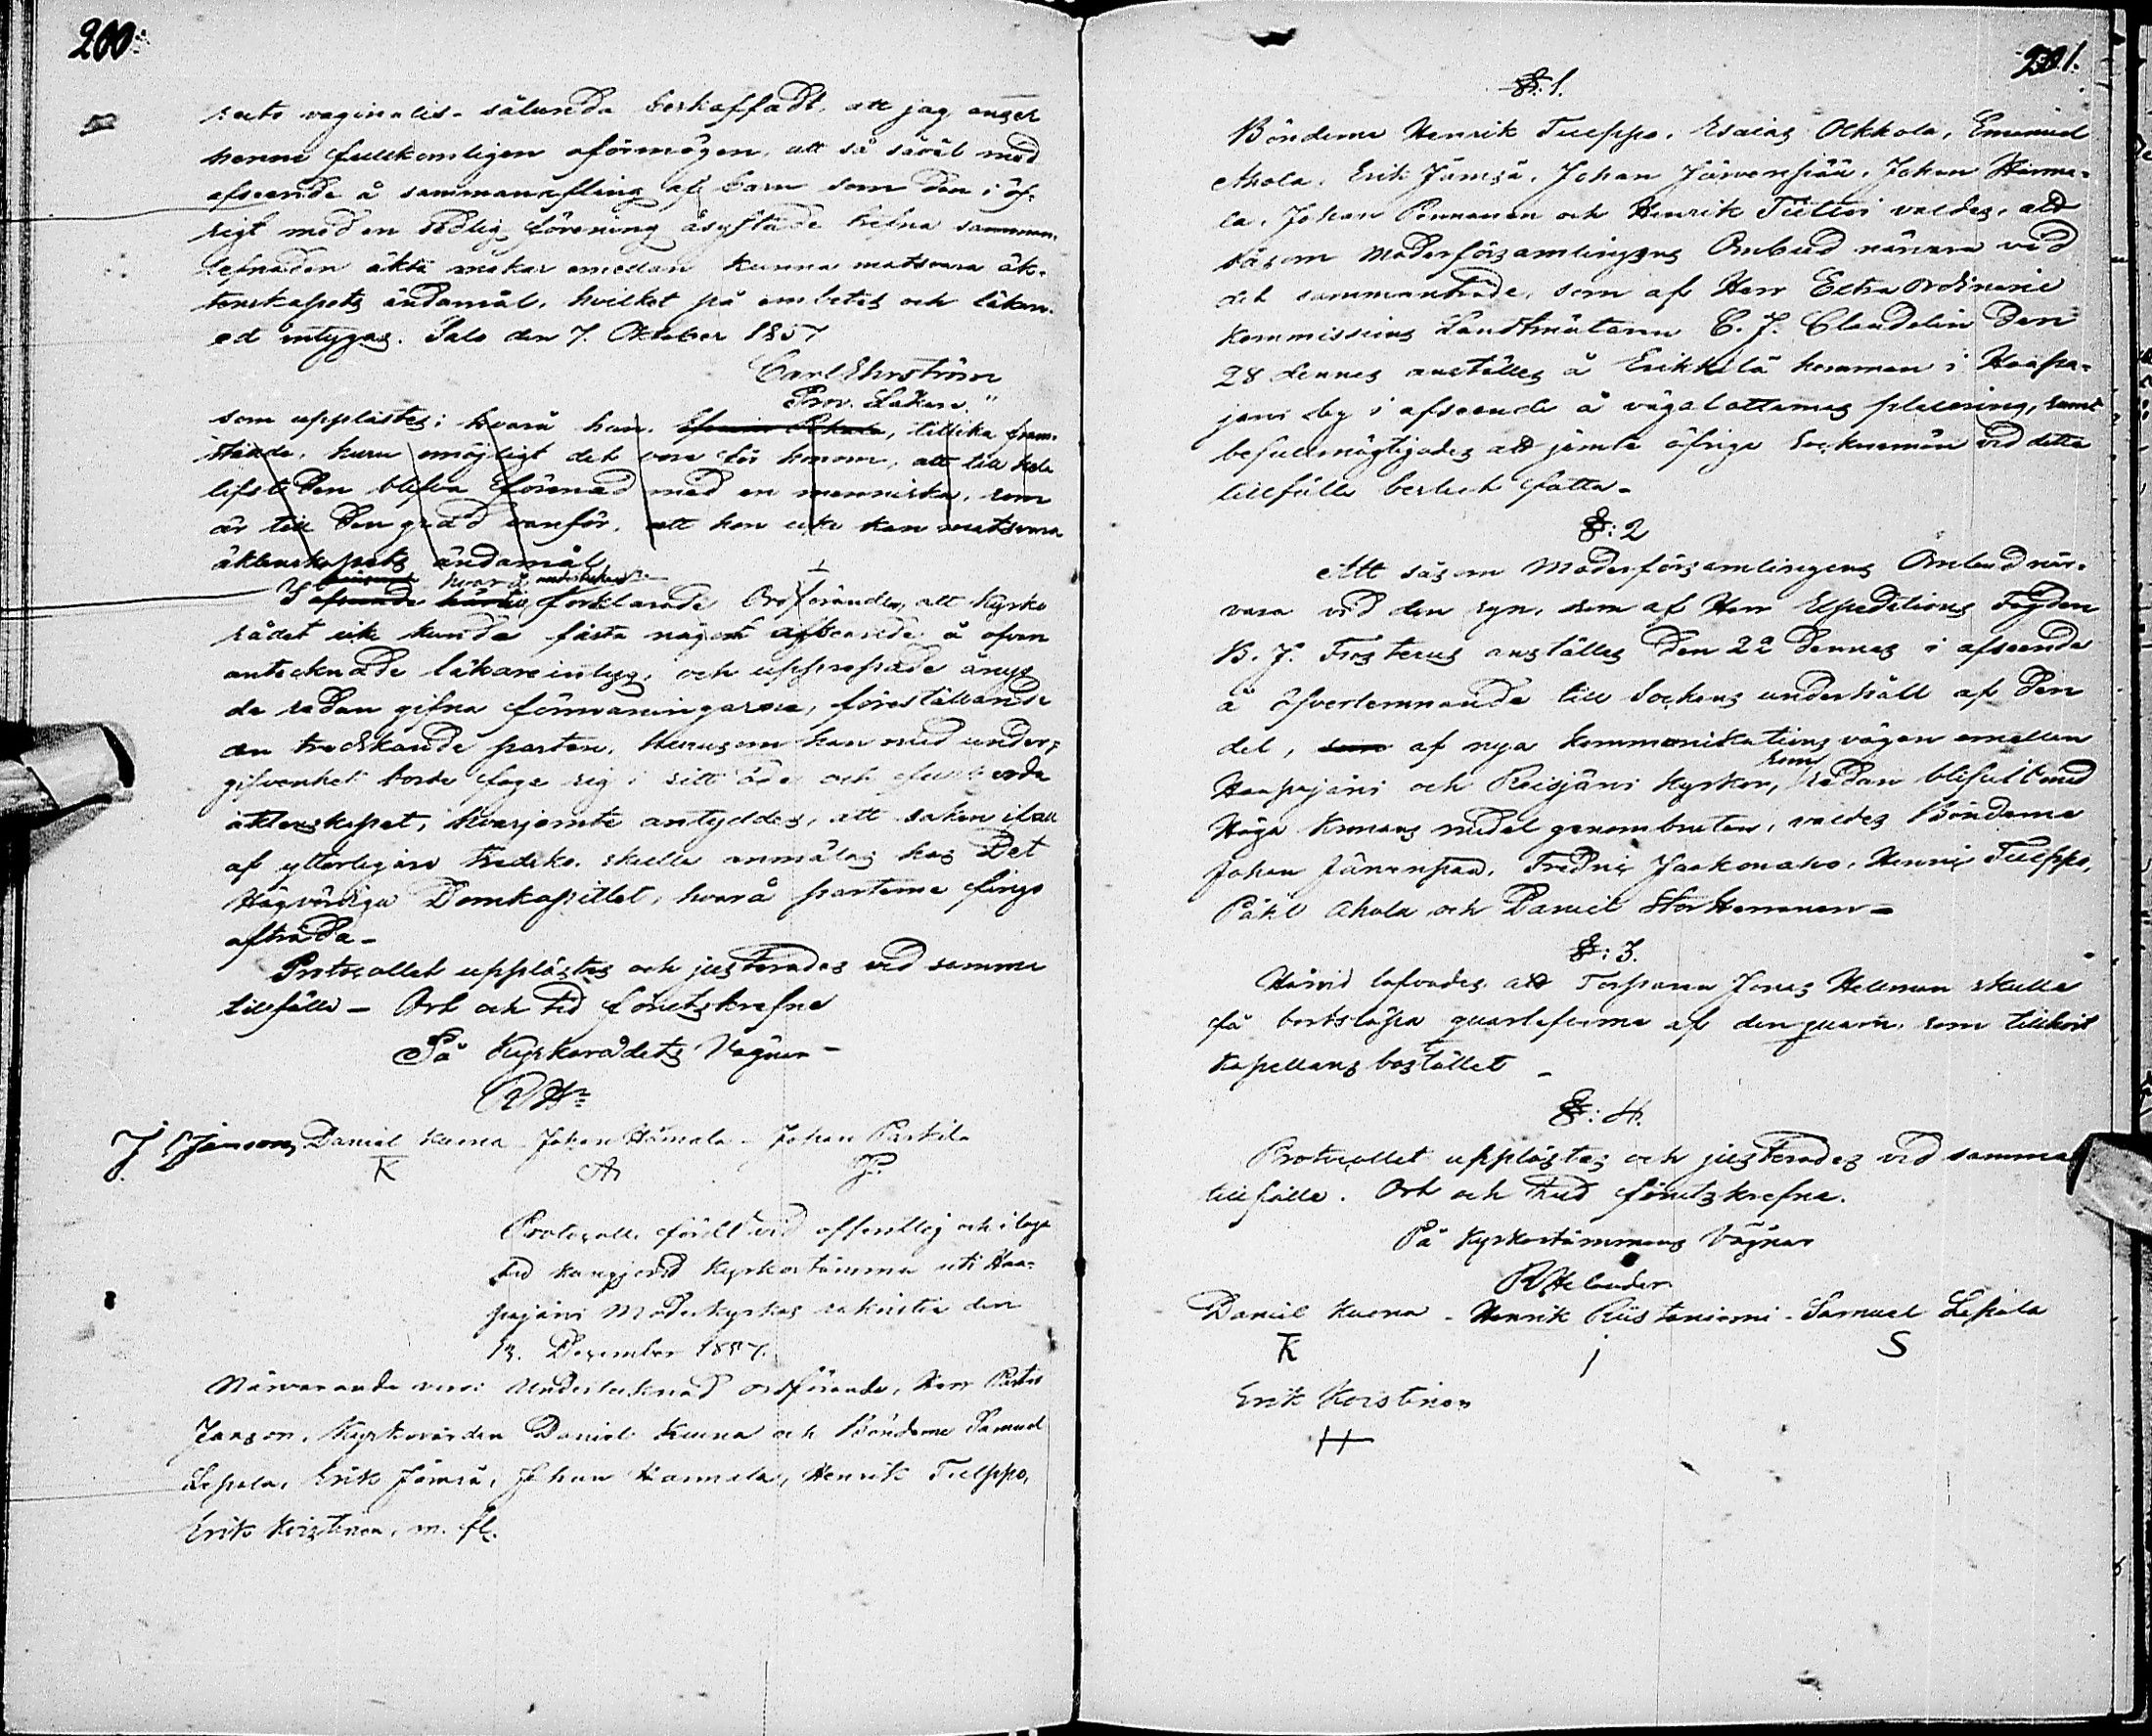 200.
recto vaginalis – sålunda beskaffadt, att jag anser
henne fullkomligen oförmögen, att så säväl med
afseende å sammanafling af barn som den i öf-
rigt med en sedlig förening åsyftade trefna samman-
lefnaden äkta makar emellan kunna motsvara äk-
tenskapets ändamål, hvilket på embetes och läkare-
ed intygas. Salo den 7. Oktober 1857
Carl Ehrström
Prov. Läkare."
som upplästes; hvarå han, tillika fram-
stälde, huru omöjligt det vore för honom, att till hela
lifstiden blifva förenad med en menniska, som
är till den grad vanför, att hon icke kan motsvara
äktenskapets ändamål
hvarå
I afseende härå förklarade Ordföranden, att Kyrko
rådet icke kunde fästa något afseende å ofvan
antecknade läkareintyg, och upprepade ånyo
de redan gifna förmaningarne, föreställande
den tredskande parten, huruson han med under-
gifvenhet borde foga sig i sitt öde och
äktenskapet, hvarjemte antyddes, att saken i fall
af ytterligare tredska skulle anmälas hos Det
Högvördiga Domkapitlet, hvarå parterne fingo
afträda –
Protocollet upplästes och justerades vid samma
tillfälle – Ort och tid föruthskrefne
På Kyrkorådets Vägnar –
RHr
J. Janson, Daniel Kuona – Johan Hämala – Johan Parkila
K A P.
Protocoll, fördt vid offentlig och i laga
tid kungjord Kyrkostämma uti Haa-
pajärvi Moderkyrkas sakristia den
13. December 1857.
Närvarande voro: Undertecknad ordförande, Herr Pastor
Janson, Kyrkovärden Daniel Kuona och Bönderne Samuel
Lepola, Erik Jämsä, Johan Hannula, Henrik Tulppo,
Erik Koistinen, m. fl.
201.
§: 1.
Bönderne Henrik Tulppo, Esaias Olkkola, Emanuel
Ahola, Erik Jämsä, Johan Järvenpää, Johan Hanna-
la, Johan Pennanen och Henrik Tiitto valdes, att
såsom Moderförsamlingens Ombud närvara vid
det sammanträde, som af Herr Extra Ordinarie
Kommissions Landtmätaren C. J. Claudelin den
28 dennes anställes å Erkkilä hemman i Haapa-
järvi by i afseende å vägalotternas placering, samt
befullmägtigades att jämte öfrige Sockenmän vid detta
tillfälle beslut fatta –
§: 2
Att såsom Moderförsamlingens Ombud när-
vara vid den syn, som af Herr Expeditions Fogden
B. J. Frosterus anställes den 22 dennes i afseende
å öfverlemnande till Sockens underhåll af den
del, som af nya kommunikations vägen emellan
som
Haapajärvi och Reisjärvi kyrkor, redan blifvit med
Höga Kronans medel genombruten, valdes Bönderne
Johan Järvenpää, Fredric Jaakonaho, Henric Tulppo,
Påhl Ahola och Daniel Storhemman –
§: 3.
Härvid lofvades, att Torparen Jonas Hellman skulle
få bortslåpa den qvarn, som tillhört
Kapellans bostället –
§: 4.
Protocollet upplästes och justerades vid samma
tillfälle. Ort och tid föruthskrefne.
På Kyrkostämmans Vägnar
RHelander
Daniel Kuona – Henrik Riistaniemi – Samuel Lepola
K I S
Erik Koistinen
H